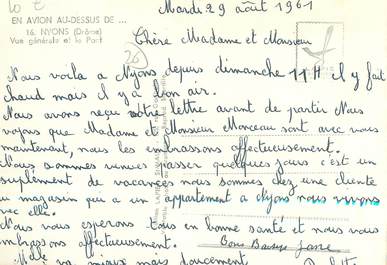 EN AVION AU-DESSUS DE ...
16. NYONS (Drôme)
Vue générale et le Pont
26
Mardi 29 août 1961
Chère Madame et Monsieur
Nous voila a Nyons depuis dimanche 11H il y fait
chaud mais il y a bon air.
Nous avons reçu votre lettre avant de partir Nous
voyons que Madame et Monsieur Monceau sont avec vous
maintenant, nous les embrassons affectueusement.
Nous sommes venues passer quelques jours c'est un
suplément de vacances nous sommes chez une cliente
du magasin qui a un appartement a Nyons nous vivons
avec elle.
Nous vous esperons tous en bonne santé et nous vous
embrassons affectueusement.
Bons Baisers
va mieux mais doucement